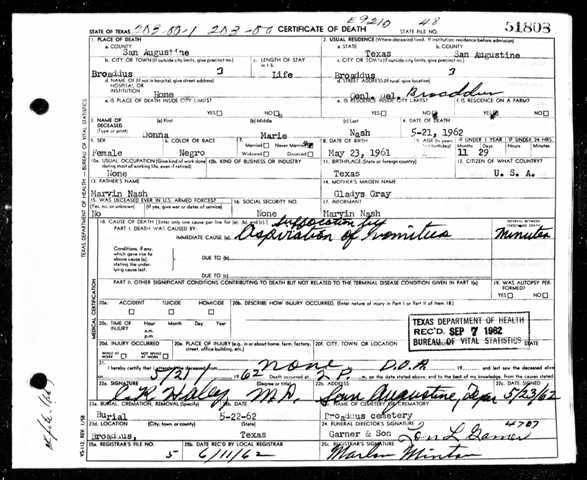 E9210 48
STATE OF TEXAS 203-00-1 203-00 CERTIFICATE OF DEATH STATE FILE NO. 51803
1. PLACE OF DEATH 2. USUAL RESIDENCE (Where deceased lived. If institution: residence before admission)
a. COUNTY San Augustine a. STATE Texas b. COUNTY San Augustine
b. CITY OR TOWN (If outside city limits, give precinct no.) c. LENGTH OF STAY c. CITY OR TOWN (If outside city limits, give precinct no.)
Broadius 3 Life Broadius 3
d. NAME OF (If not in hospital, give street address) HOSPITAL OR INSTITUTION d. STREET ADDRESS (If rural, give location)
Home Genl. Del. Broaddus
e. IS PLACE OF DEATH INSIDE CITY LIMITS? e. IS RESIDENCE INSIDE CITY LIMITS? f. IS RESIDENCE ON A FARM?
YES NO YES NO YES NO
3. NAME OF DECEASED (Type or print) (a) First (b) Middle (c) Last 4. DATE OF DEATH
Donna Marie Nash 5-21, 1962
5. SEX 6. COLOR OR RACE 7. Married Never Married Widowed Divorced 8. DATE OF BIRTH 9. AGE IF UNDER 1 YEAR IF UNDER 24 HRS.
Female Negro May 23, 1961 11 29
10a. USUAL OCCUPATION (Give kind of work done 10b. KIND OF BUSINESS OR INDUSTRY 11. BIRTHPLACE (State or foreign country) 12. CITIZEN OF WHAT COUNTRY?
None Texas U. S. A.
13. FATHER'S NAME 14. MOTHER'S MAIDEN NAME
Marvin Nash Gladys Gray
15. WAS DECEASED EVER IN U.S. ARMED FORCES? 16. SOCIAL SECURITY NO. 17. INFORMANT
(Yes, no, or unknown) (If yes, give war or dates of service)
No None Marvin Nash
18. CAUSE OF DEATH (Enter only one cause per line for (a), (b), and (c).) INTERVAL BETWEEN
PART I. DEATH WAS CAUSED BY: Suffocation by
IMMEDIATE CAUSE (a) Aspiration of Vomitus Minutes
Conditions, if any, which gave rise to above cause (a), stating the underlying cause last.
DUE TO (b)
DUE TO (c)
PART II. OTHER SIGNIFICANT CONDITIONS CONTRIBUTING TO DEATH BUT NOT RELATED TO THE TERMINAL DISEASE CONDITION GIVEN IN PART I(a) 19. WAS AUTOPSY PERFORMED?
YES NO
20a. ACCIDENT SUICIDE HOMICIDE 20b. DESCRIBE HOW INJURY OCCURRED. (Enter nature of injury in Part I or Part II of item 18.)
20c. TIME OF INJURY Hour Month Day Year
a.m.
p.m.
TEXAS DEPARTMENT OF HEALTH
REC'D SEP 7 1962
BUREAU OF VITAL STATISTICS
20d. INJURY OCCURRED 20e. PLACE OF INJURY (e.g., in or about home, farm, factory, street, office building, etc.) 20f. CITY, TOWN, OR LOCATION COUNTY STATE
WHILE AT WORK NOT WHILE AT WORK
21. I hereby certify that I attended the deceased from none D.O.A. 19 and last saw the deceased
5/21 62 Death occurred at 2 P. m. on the date stated above, and to the best of my knowledge, from the causes stated.
22a. SIGNATURE (Degree or title) 22b. ADDRESS 22c. DATE SIGNED
C.K. Haley M.D. San Augustine, Texas 5/23/62
23a. BURIAL, CREMATION, REMOVAL (Specify) 23b. DATE 23c. NAME OF CEMETERY OR CREMATORY
Burial 5-22-62 Broadius cemetery
23d. LOCATION (City, town, or county) (State) 24. FUNERAL DIRECTOR'S SIGNATURE 4707
Broadius, Texas Garner & Son Ton L Garner
25a. REGISTRAR'S FILE NO. 25b. DATE REC'D BY LOCAL REGISTRAR 25c. REGISTRAR'S SIGNATURE
5 6/11/62 Marlon Minton
TEXAS DEPARTMENT OF HEALTH — BUREAU OF VITAL STATISTICS
MEDICAL CERTIFICATION
VS-112 REV. 1/58